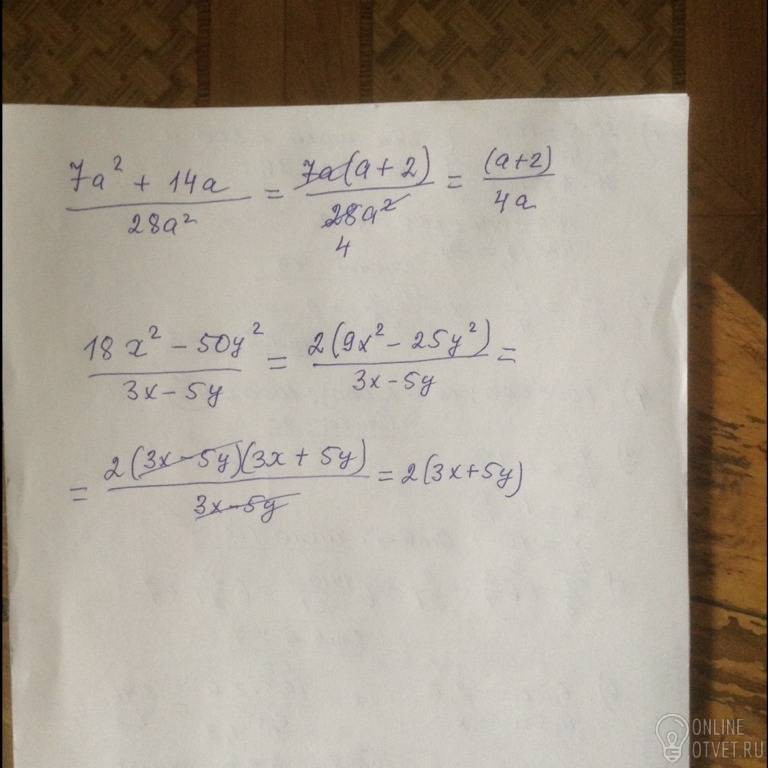 7a² + 14a / 28a² = 7a(a + 2) / 28a² = (a+2) / 4a
4
18x² − 50y² / 3x − 5y = 2(9x² − 25y²) / 3x − 5y =
= 2(3x − 5y)(3x + 5y) / 3x − 5y = 2(3x+5y)
ONLINE
OTVET.RU